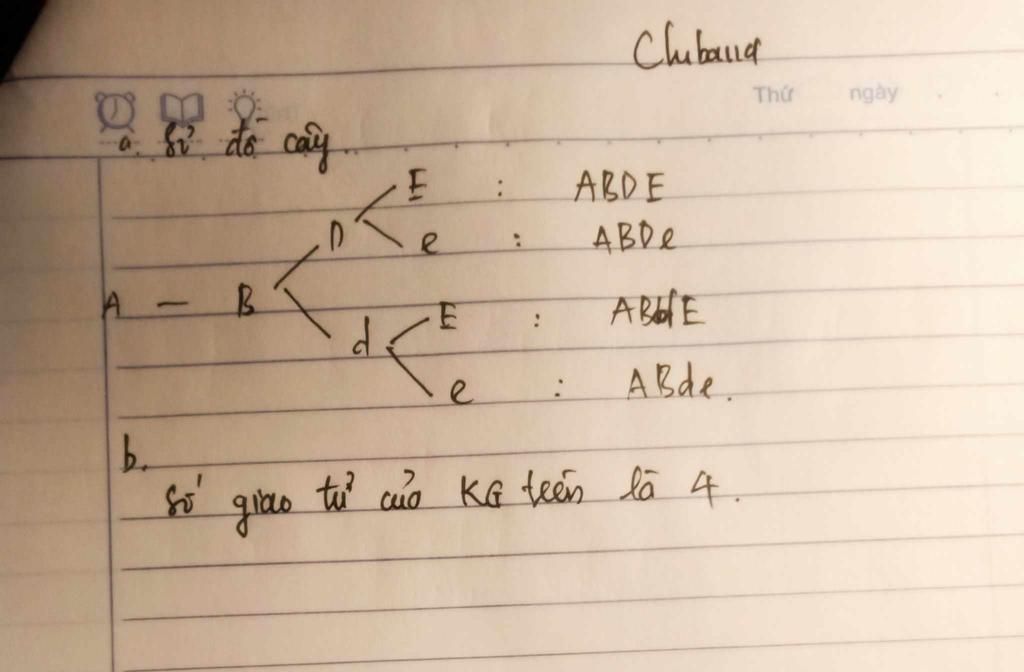 Chubaud
Thứ ngày
a. Sơ đồ cây.
E : ABDE
D
e : ABDe
A — B
E : ABdE
d
e : ABde.
b.
Số giao tử của KG trên là 4.